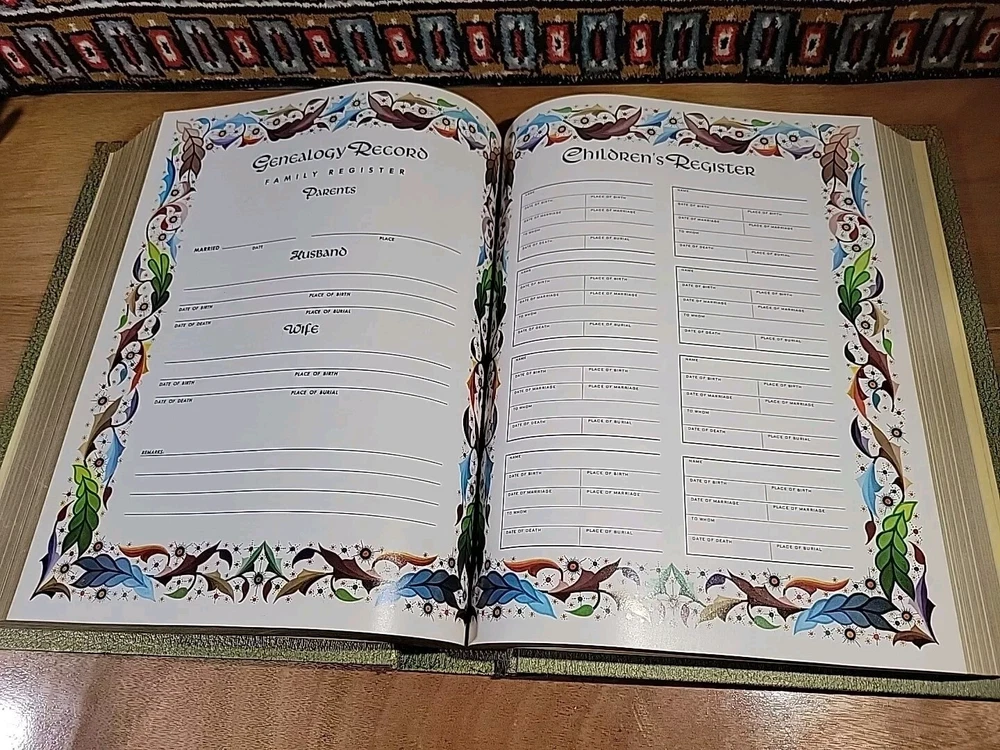 Genealogy Record
FAMILY REGISTER
Parents
MARRIED DATE PLACE
Husband
DATE OF BIRTH PLACE OF BIRTH
DATE OF DEATH PLACE OF BURIAL
Wife
DATE OF BIRTH PLACE OF BIRTH
DATE OF DEATH PLACE OF BURIAL
REMARKS:
Children's Register
NAME
DATE OF BIRTH PLACE OF BIRTH
DATE OF MARRIAGE PLACE OF MARRIAGE
TO WHOM
DATE OF DEATH PLACE OF BURIAL
NAME
DATE OF BIRTH PLACE OF BIRTH
DATE OF MARRIAGE PLACE OF MARRIAGE
TO WHOM
DATE OF DEATH PLACE OF BURIAL
NAME
DATE OF BIRTH PLACE OF BIRTH
DATE OF MARRIAGE PLACE OF MARRIAGE
TO WHOM
DATE OF DEATH PLACE OF BURIAL
NAME
DATE OF BIRTH PLACE OF BIRTH
DATE OF MARRIAGE PLACE OF MARRIAGE
TO WHOM
DATE OF DEATH PLACE OF BURIAL
NAME
DATE OF BIRTH PLACE OF BIRTH
DATE OF MARRIAGE PLACE OF MARRIAGE
TO WHOM
DATE OF DEATH PLACE OF BURIAL
NAME
DATE OF BIRTH PLACE OF BIRTH
DATE OF MARRIAGE PLACE OF MARRIAGE
TO WHOM
DATE OF DEATH PLACE OF BURIAL
NAME
DATE OF BIRTH PLACE OF BIRTH
DATE OF MARRIAGE PLACE OF MARRIAGE
TO WHOM
DATE OF DEATH PLACE OF BURIAL
NAME
DATE OF BIRTH PLACE OF BIRTH
DATE OF MARRIAGE PLACE OF MARRIAGE
TO WHOM
DATE OF DEATH PLACE OF BURIAL